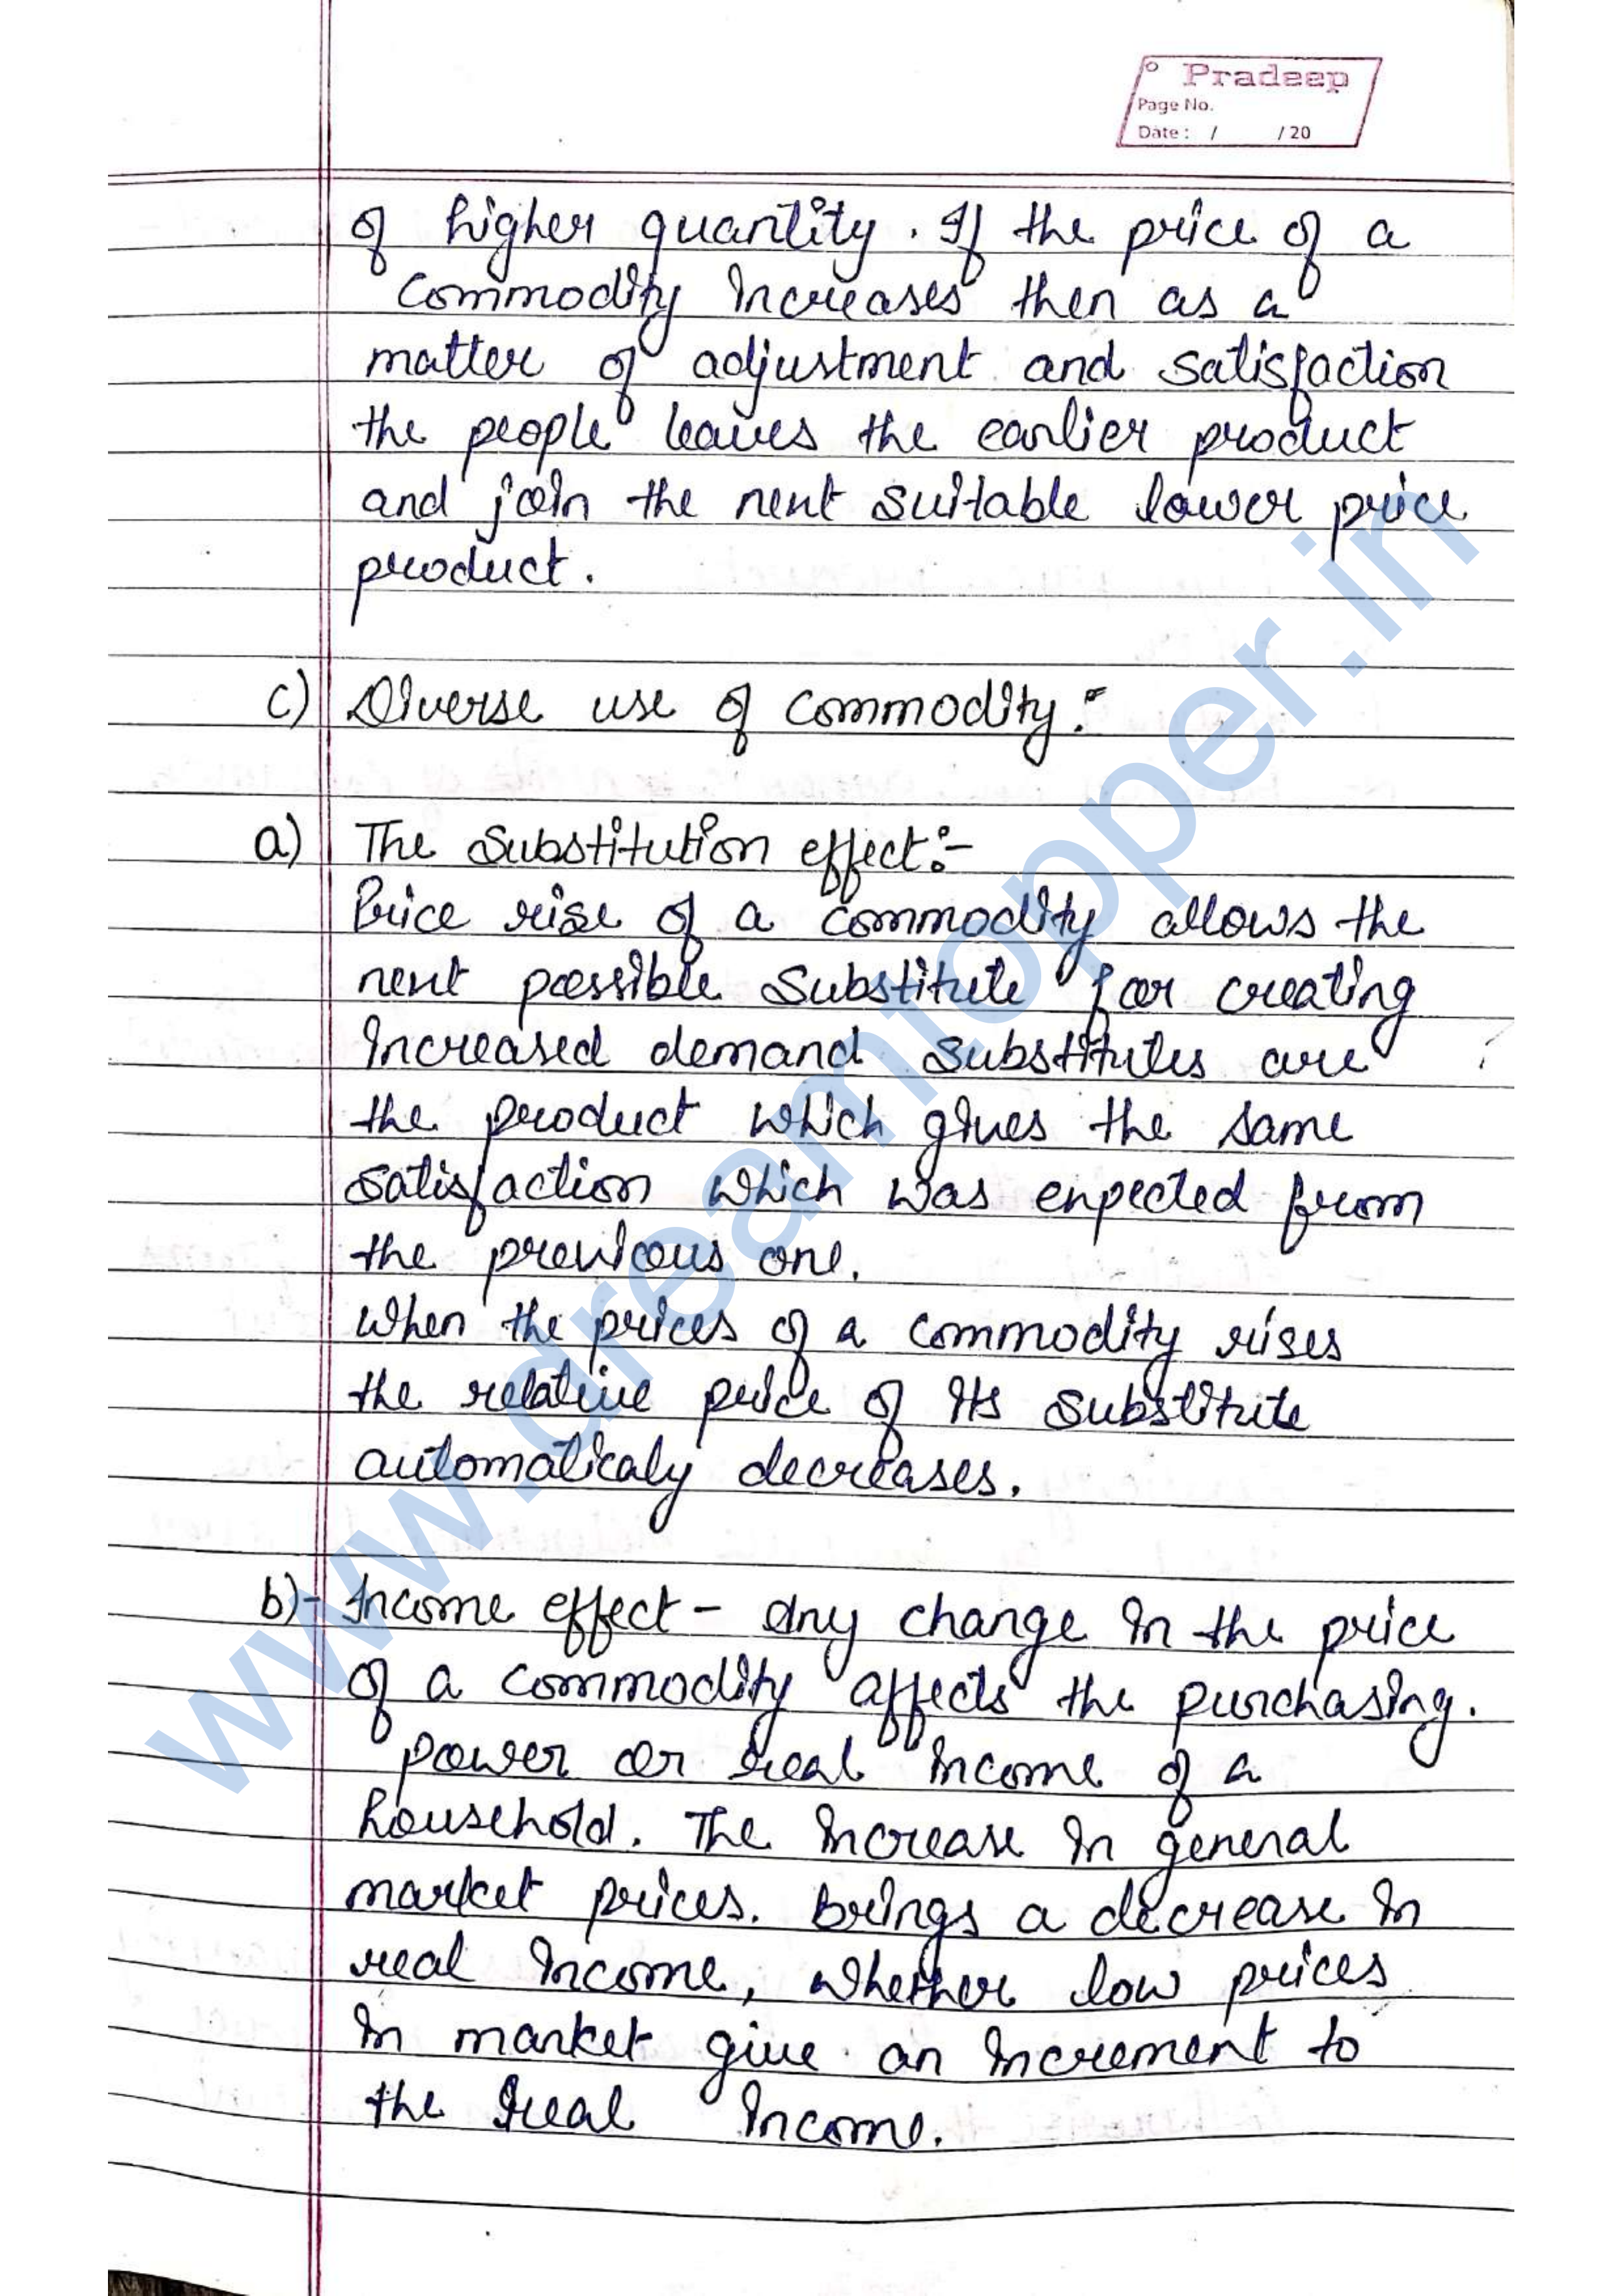 Pradeep
Page No.
Date : / / 20
of higher quantity. If the price of a
commodity increases then as a
matter of adjustment and satisfaction
the people leaves the earlier product
and join the next suitable lower price
product.
c) Diverse use of commodity :-
a) The Substitution effect :-
Price rise of a commodity allows the
next possible substitute for creating
increased demand. substitutes are
the product which gives the same
satisfaction which was expected from
the previous one.
When the prices of a commodity rises
the relative price of its substitute
automaticaly decreases.
b)- Income effect - Any change in the price
of a commodity affects the purchasing.
power or real income of a
household. The increase in general
market prices. brings a decrease in
real income, whether low prices
in market give an increment to
the real income.
www.dreamtopper.in